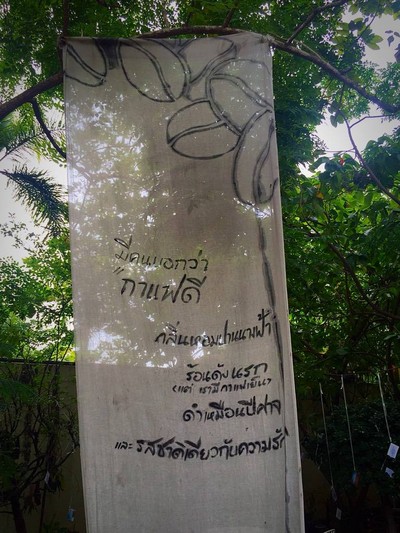 มีคนบอกว่า
"กาแฟดี
กลิ่นหอมปานนางฟ้า
ร้อนดังนรก
(แต่ เรามีกาแฟเย็น)
ดำเหมือนปีศาจ
และ รสชาติเดียวกับความรัก